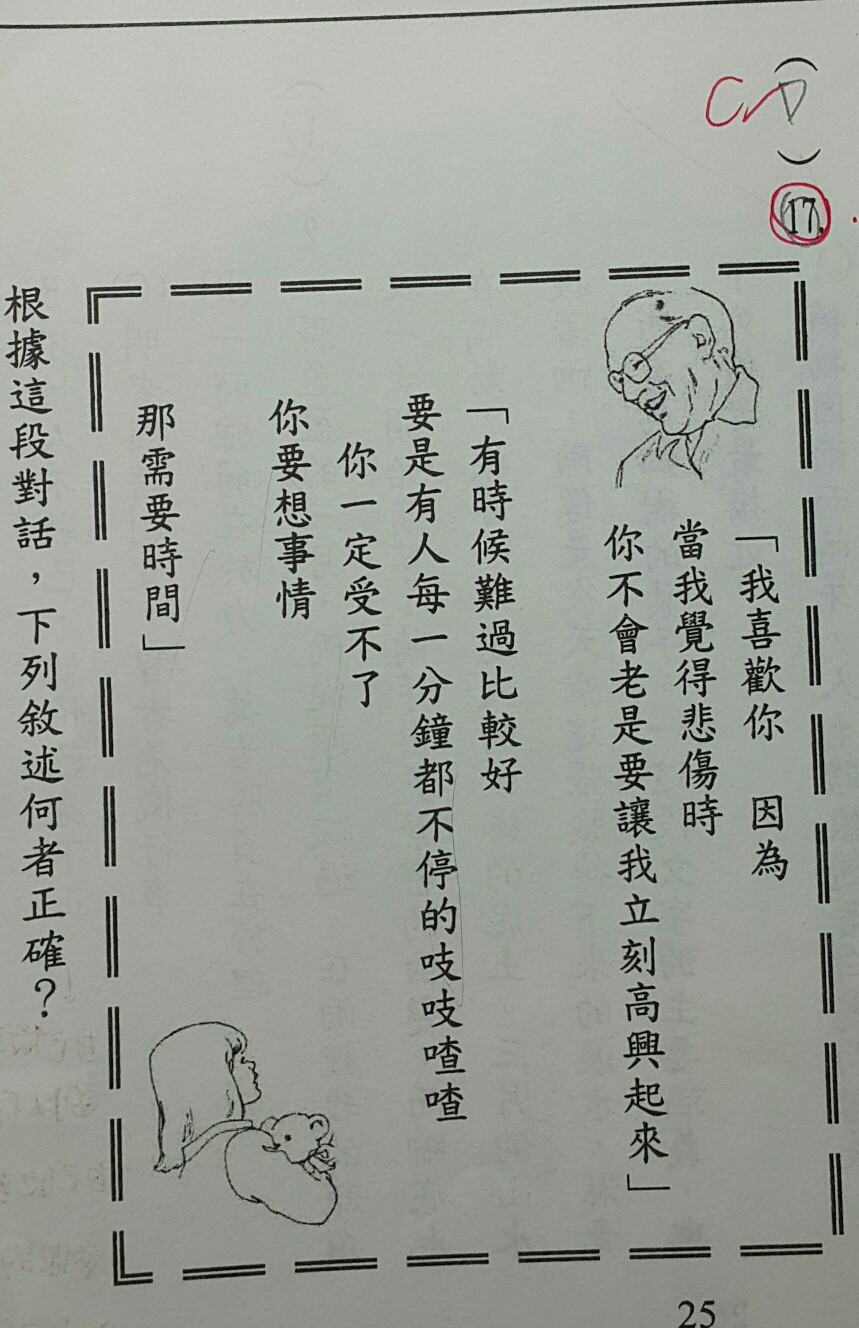 （D）
C
17.
「我喜歡你　因為
當我覺得悲傷時
你不會老是要讓我立刻高興起來」
「有時候難過比較好
要是有人每一分鐘都不停的吱吱喳喳
你一定受不了
你要想事情
那需要時間」
根據這段對話，下列敘述何者正確？
25